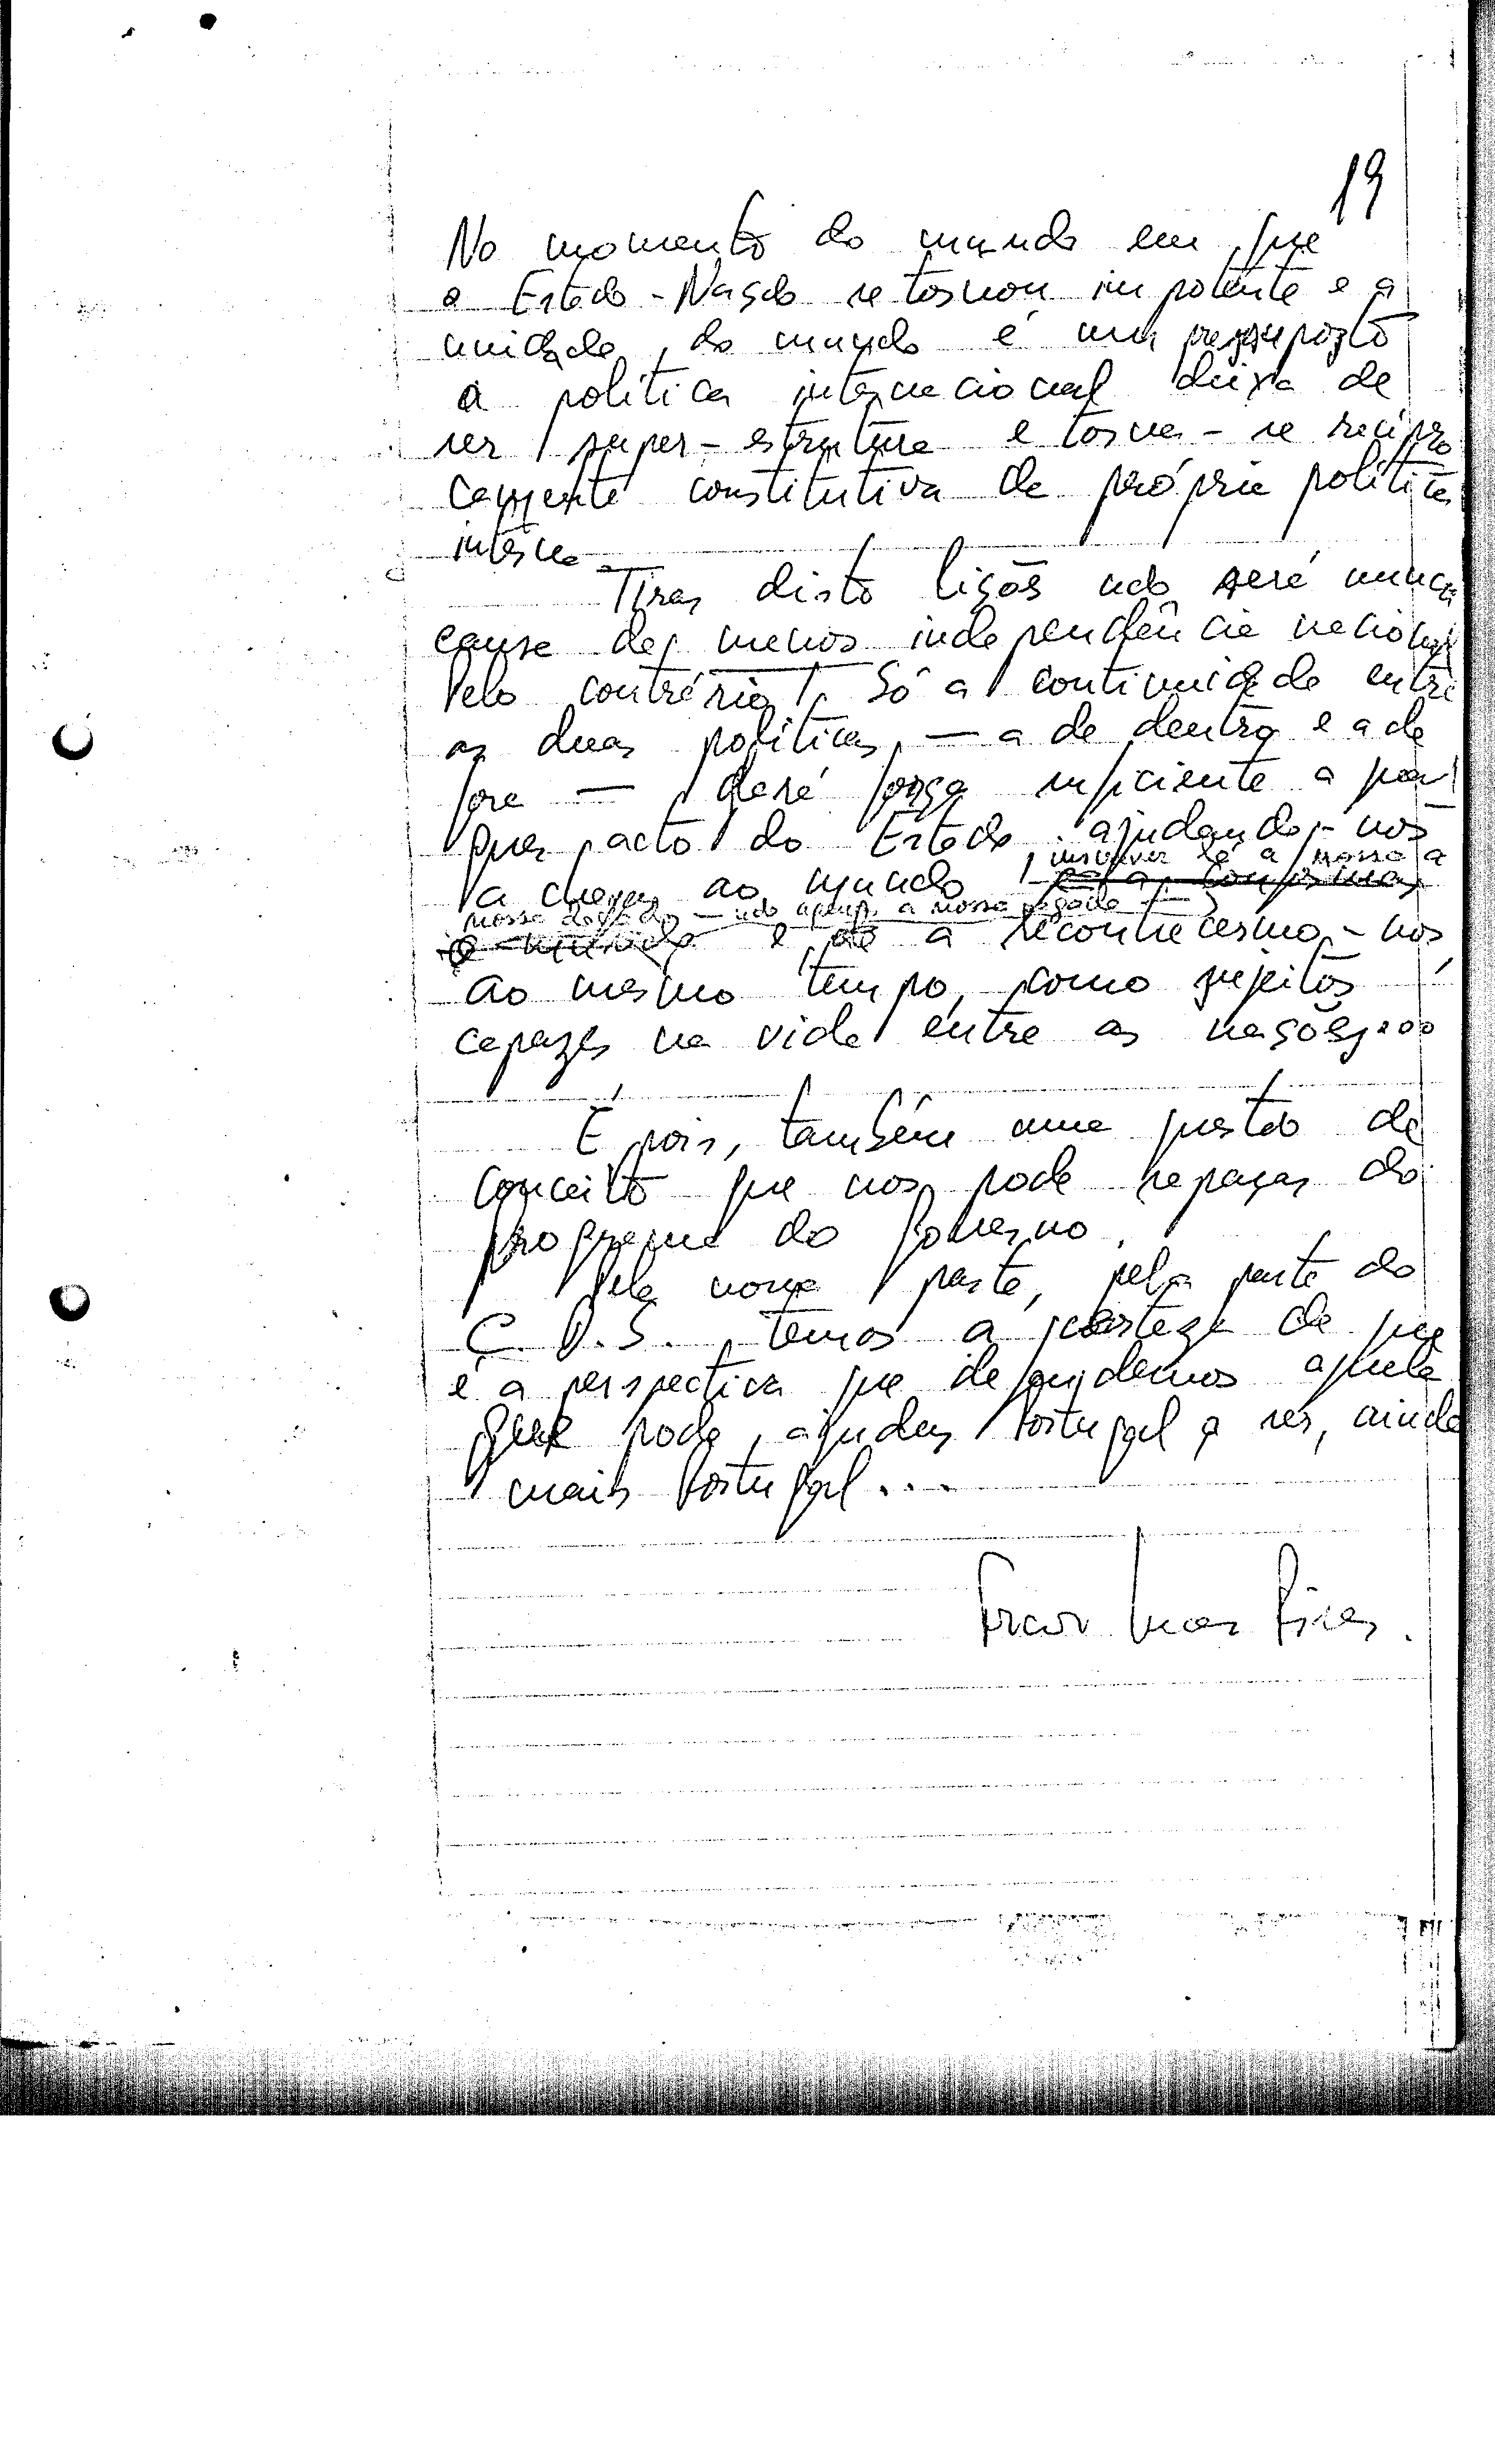 19
No momento do mundo em que
o Estado-Nação se tornou impotente e a
unidade do mundo é um pressuposto
a política internacional deixa de
ser super-estrutura e torna-se recipro
camente constitutiva da própria política
interna.
Tirar disto lições não será nunca
causa de menos independência nacional
Pelo contrário! Só a continuidade entre
as duas políticas, — a de dentro e a de
fora — dará força suficiente a qual
quer acto do Estado ajudando-nos
inscrever lá a nossa a
a chegar ao mundo, para
nossa — não apenas a nossa pegada —
e até a reconhecermo-nos,
ao mesmo tempo, como sujeitos
capazes na vida entre as nações...
É pois, também uma questão de
conceito que nos pode separar do
programa do Governo.
Pela nossa parte, pela parte do
C.D.S., temos a certeza de que
é a perspectiva que defendemos aquela
que pode ajudar Portugal a ser, ainda
mais Portugal...
Francisco Lucas Pires.